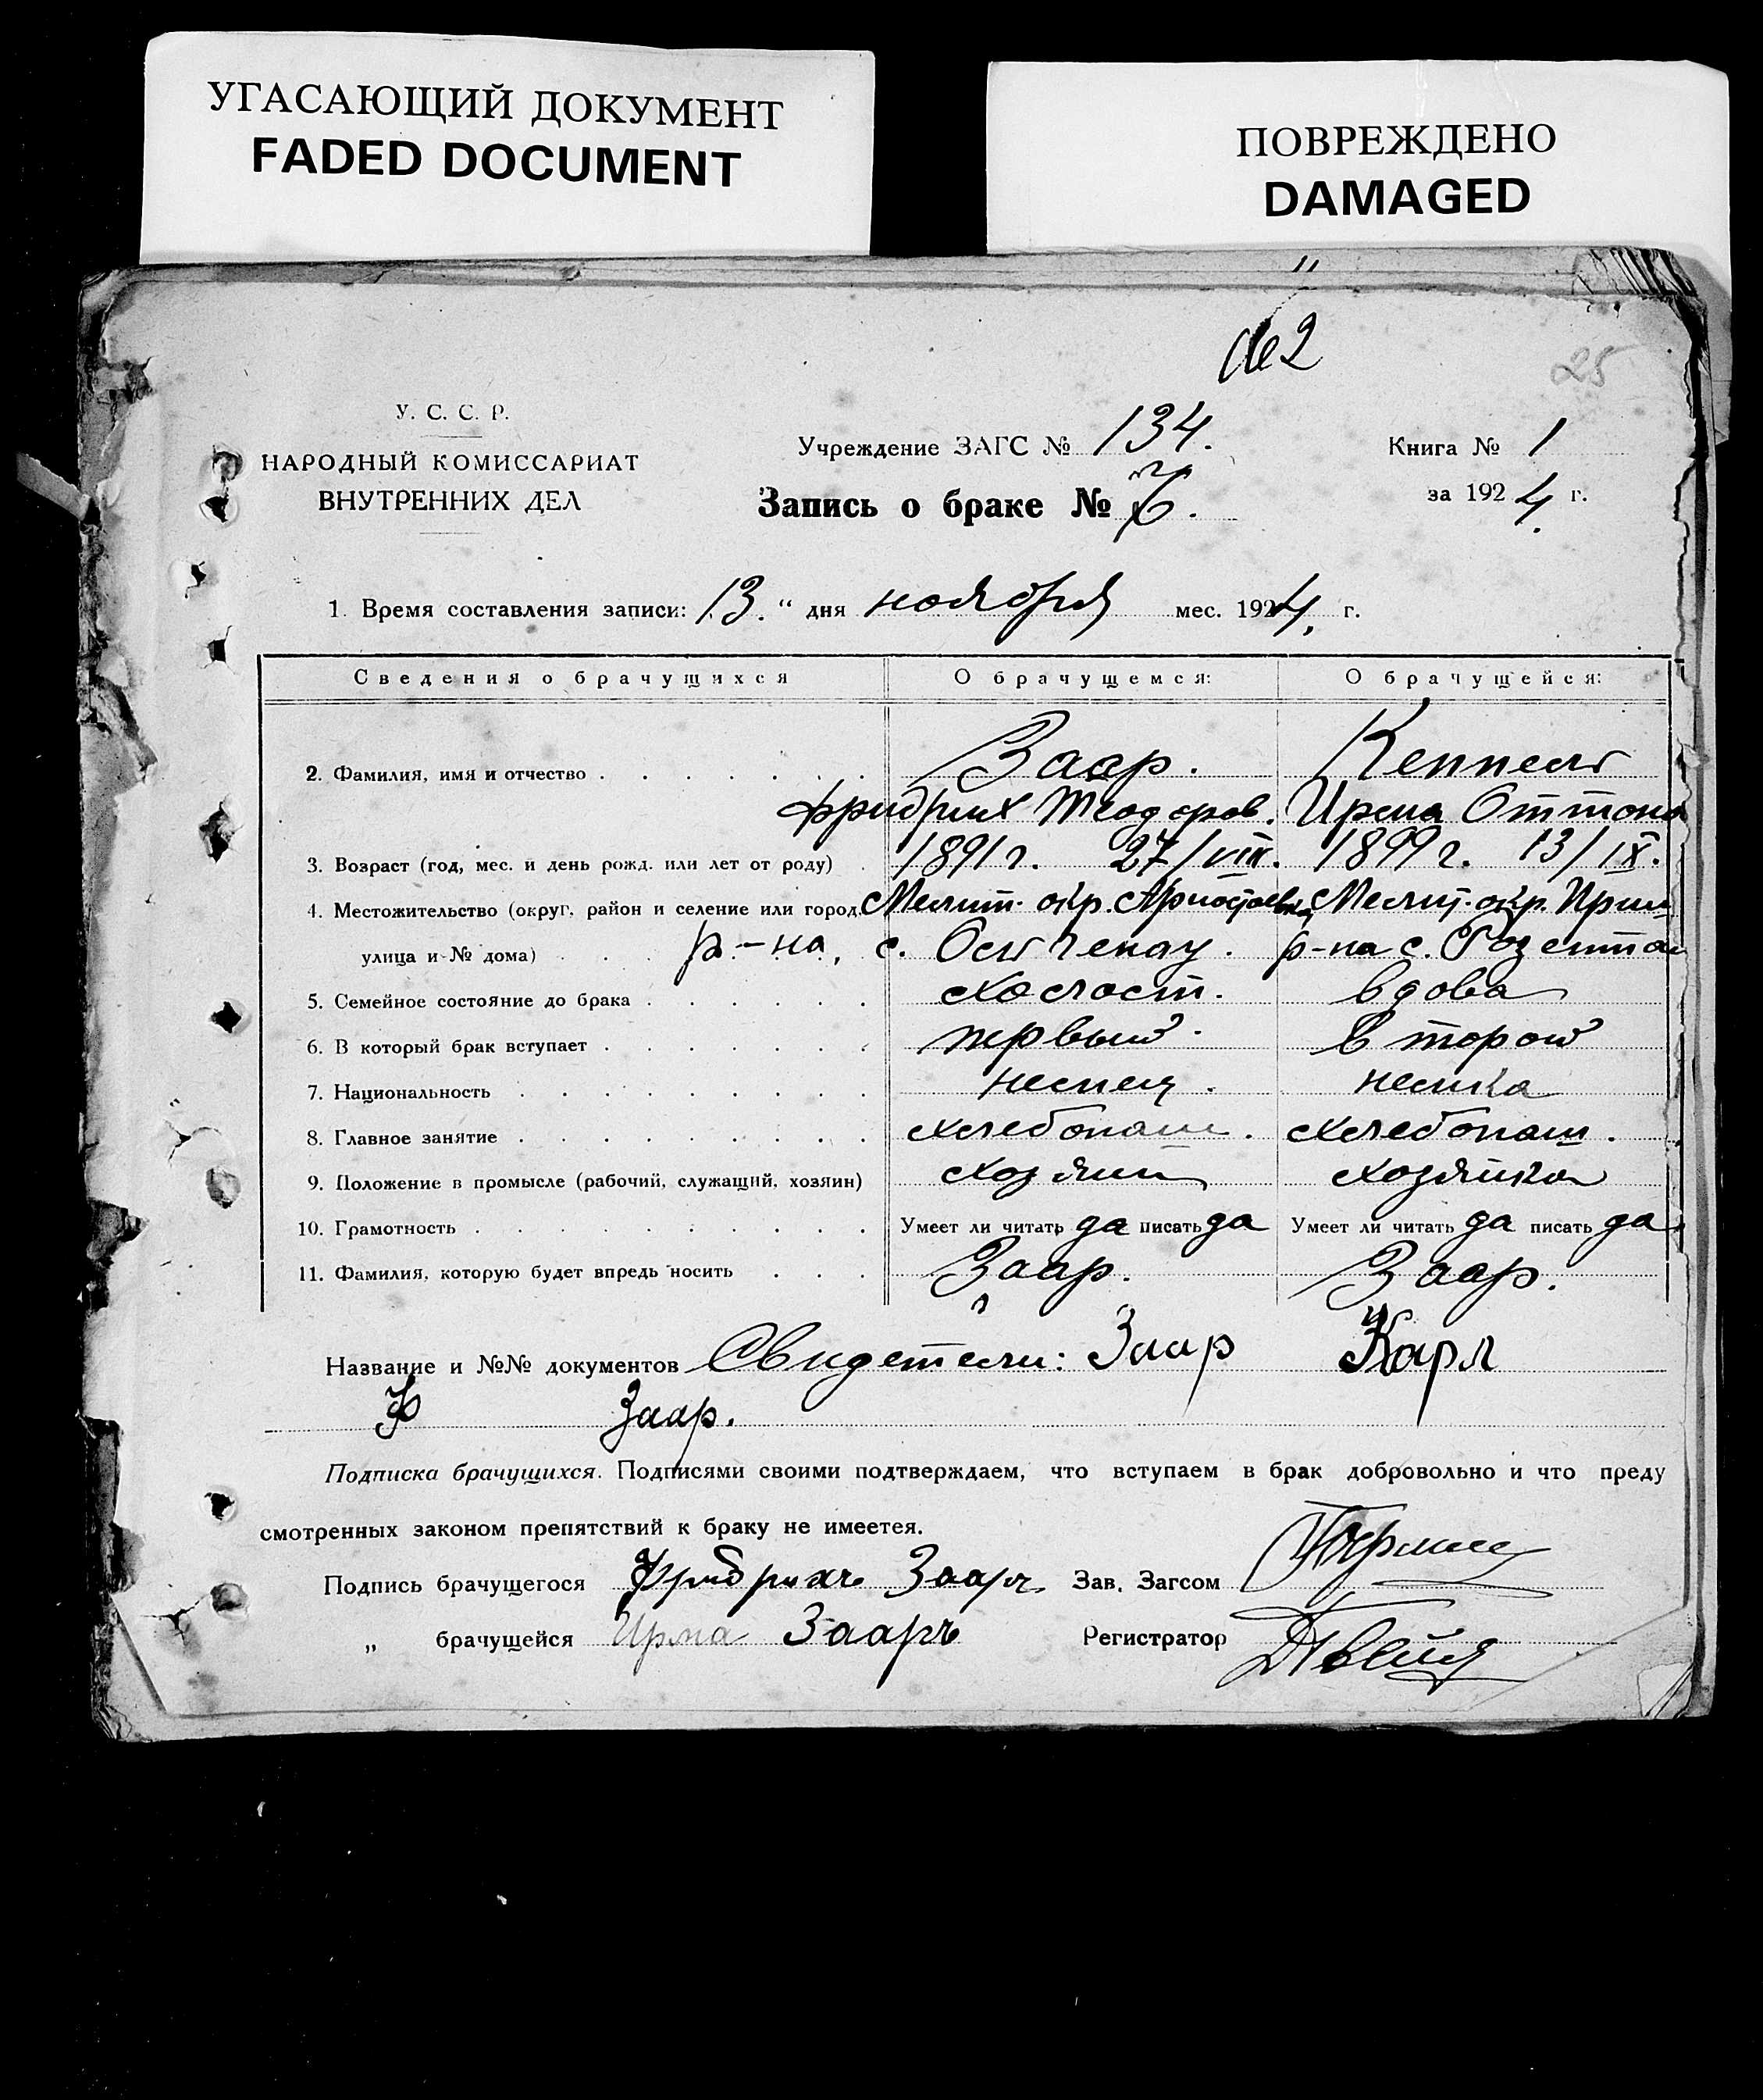 УГАСАЮЩИЙ ДОКУМЕНТ
FADED DOCUMENT
ПОВРЕЖДЕНО
DAMAGED
№ 2
25
У. С. С. Р.
НАРОДНЫЙ КОМИССАРИАТ
ВНУТРЕННИХ ДЕЛ
Учреждение ЗАГС № 134.
Запись о браке № 6.
Книга № 1
за 1924 г.
1. Время составления записи: 13. " дня ноября мес. 1924 г.
Сведения о брачущихся О брачущемся: О брачущейся:
2. Фамилия, имя и отчество Заар. Кеппель
Фридрих Теодоров. Ирма Оттоно
3. Возраст (год, мес. и день рожд. или лет от роду) 1891 г. 27/VIII. 1899 г. 13/IX.
4. Местожительство (округ, район и селение или город, Мелит. окр. Мелит. окр. Приш
улица и № дома) р-на, с. р-на с. Розентал
5. Семейное состояние до брака холост. вдова
6. В который брак вступает первый. второй
7. Национальность немец. немка
8. Главное занятие хлебопаш. хлебопаш.
9. Положение в промысле (рабочий, служащий, хозяин) хозяин хозяйка
10. Грамотность Умеет ли читать да писать да Умеет ли читать да писать да
11. Фамилия, которую будет впредь носить Заар. Заар.
Название и №№ документов Свидетели: Заар Карл
Ф Заар.
Подписка брачущихся. Подписями своими подтверждаем, что вступаем в брак добровольно и что преду
смотренных законом препятствий к браку не имеетея.
Подпись брачущегося Фридрихъ Зааръ Зав. Загсом
„ брачущейся Ирма Зааръ Регистратор